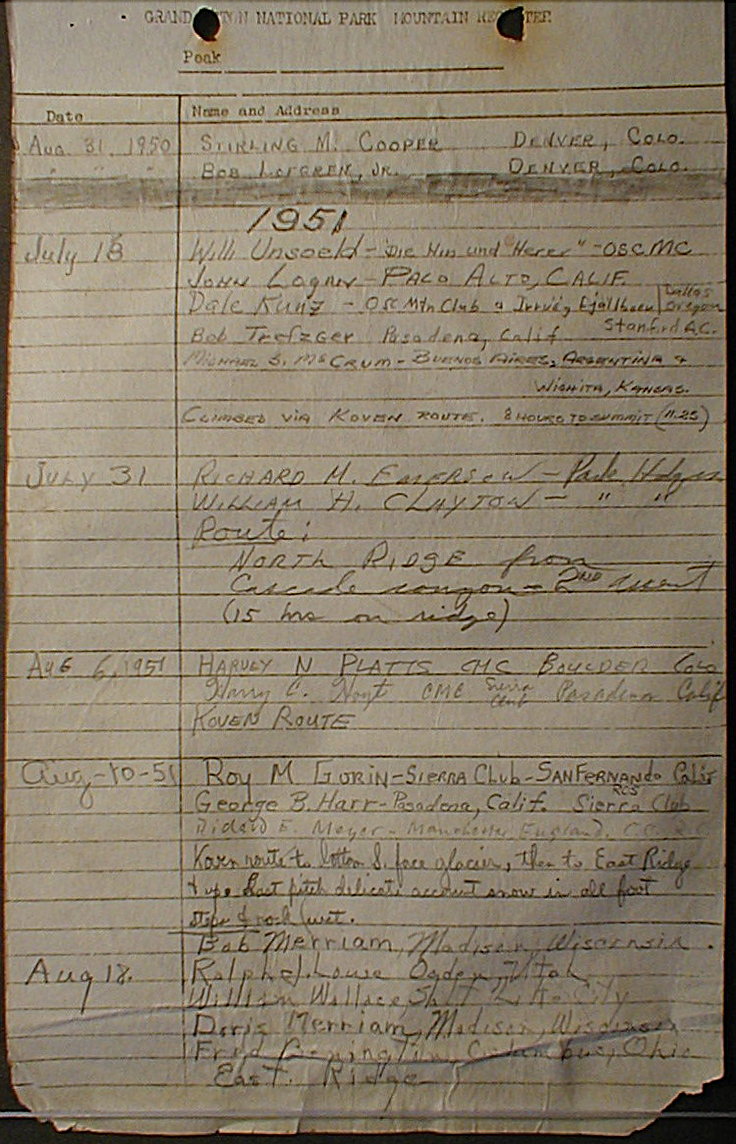 GRAND TETON NATIONAL PARK MOUNTAIN REGISTER
Peak
Date Name and Address
Aug. 31, 1950 STIRLING M. COOPER DENVER, COLO.
" " " BOB LOFGREN, JR. DENVER, COLO.
1951
July 18 Willi Unsoeld - "Die Hin und Herer" - OSCMC
JOHN LOGAN - PALO ALTO, CALIF.
Dale Kunz - OSC Mtn Club & Dallas
Oregon
Bob Trefzger Pasadena, Calif Stanford A.C.
MICHAEL S. MCCRUM - BUENOS AIRES, ARGENTINA &
WICHITA, KANSAS.
CLIMBED VIA KOVEN ROUTE. 8 HOURS TO SUMMIT (11.25)
JULY 31 RICHARD M. EMERSON - Park
WILLIAM H. CLAYTON - " "
Route:
NORTH RIDGE from
Cascade canyon - 2ND ascent
(15 hrs on ridge)
Aug 6, 1951 HARVEY N PLATTS CMC BOULDER COLO
Harry C. Hoyt CMC Sierra Club Pasadena Calif
KOVEN ROUTE
Aug-10-51 Roy M GORIN - SIERRA CLUB - SAN FERNANDO Calif
George B. Harr - Pasadena, Calif. Sierra Club RCS
E. Meyer - Manchester England.
Koven route to bottom S. face glacier, then to East Ridge
& up. Last pitch delicate account snow in all foot
steps & rock wet.
Bob Merriam, Madison, Wisconsin.
Aug 18. Ralph J. Louse Ogden, Utah
William Wallace, Salt Lake City
Doris Merriam, Madison, Wisconsin
Fred Columbus, Ohio
East Ridge